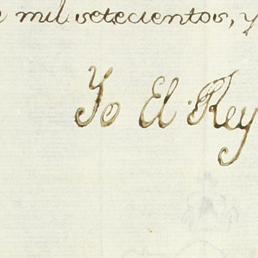 mil setecientos, y
Yo El Rey